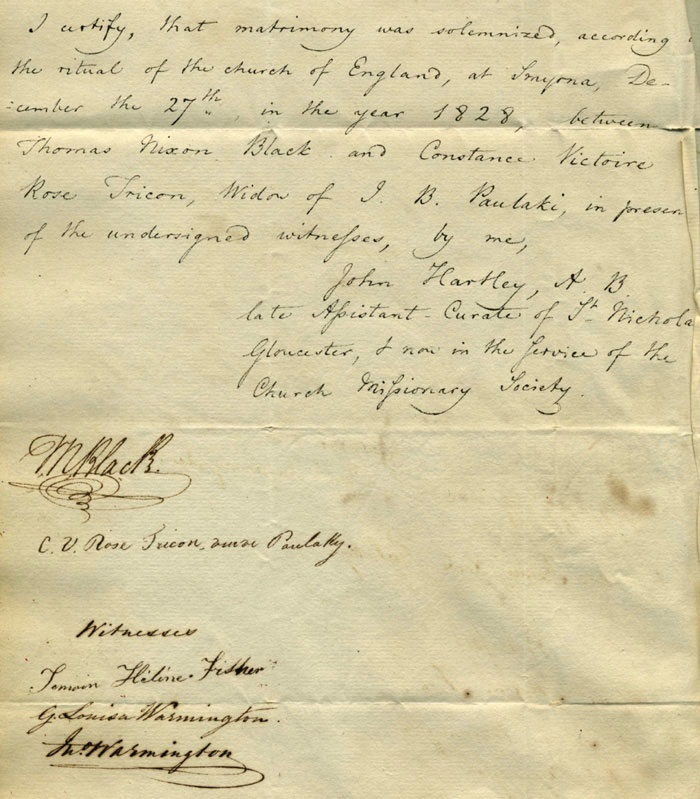 I certify, that matrimony was solemnized, according
the ritual of the church of England, at Smyrna, De-
-cember the 27th, in the year 1828, between
Thomas Nixon Black and Constance Victoire
Rose Tricon, Widow of J. B. Paulaki, in presen
of the undersigned witnesses, by me,
John Hartley, A. B.
late Assistant-Curate of St. Nichola
Gloucester, & now in the service of the
Church Missionary Society.
T N Black.
C. V. Rose Tricon, veuve Paulaky.
Witnesses
Temoin Hélène Fisher
G. Louisa Warmington.
Jno. Warmington